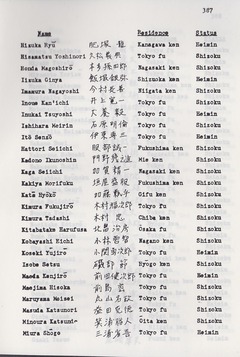 387
Name Residence Status
Hizuka Ryū 肥塚 龍 Kanagawa ken Heimin
Hisamatsu Yoshinori 久松義典 Tokyo fu Shizoku
Honda Magoshirō 本多孫四郎 Nagasaki ken Shizoku
Iizuka Ginya Shizuoka ken Heimin
Imamura Nagayoshi 今村長善 Niigata ken Shizoku
Inoue Kan'ichi 井上寛一 Tokyo fu Shizoku
Inukai Tsuyoshi 犬養 毅 Tokyo fu Shizoku
Ishihara Heirin Tokyo fu Heimin
Itō Senzō Tokyo fu Shizoku
Hattori Seiichi 服部誠一 Fukushima ken Shizoku
Kadono Ikunoshin 門野幾之進 Mie ken Shizoku
Kaga Seiichi 加賀精一 Nagasaki ken Shizoku
Kakiya Morifuku Fukushima ken Shizoku
Katō Hyōko Gifu ken Shizoku
Kimura Fukujirō 木村福次郎 Tokyo fu Shizoku
Kimura Tadashi 木村 忠 Chiba ken Shizoku
Kitabatake Harufusa 北畠治房 Osaka fu Shizoku
Kobayashi Eichi 小林營智 Nagano ken Shizoku
Koseki Yujiro Tokyo fu Shizoku
Isobe Setsu 磯部 節 Hyogo ken Heimin
Maeda Kenjirō 前田健次郎 Tokyo fu Heimin
Maejima Hisoka 前島 密 Tokyo fu Shizoku
Maruyama Meisei 丸山名政 Tokyo fu Shizoku
Masuda Katsunori 益田克徳 Tokyo fu Shizoku
Minoura Katsundo 箕浦勝人 Ōita ken Shizoku
Miura Shōgo 三浦省吾 Tokyo fu Heimin